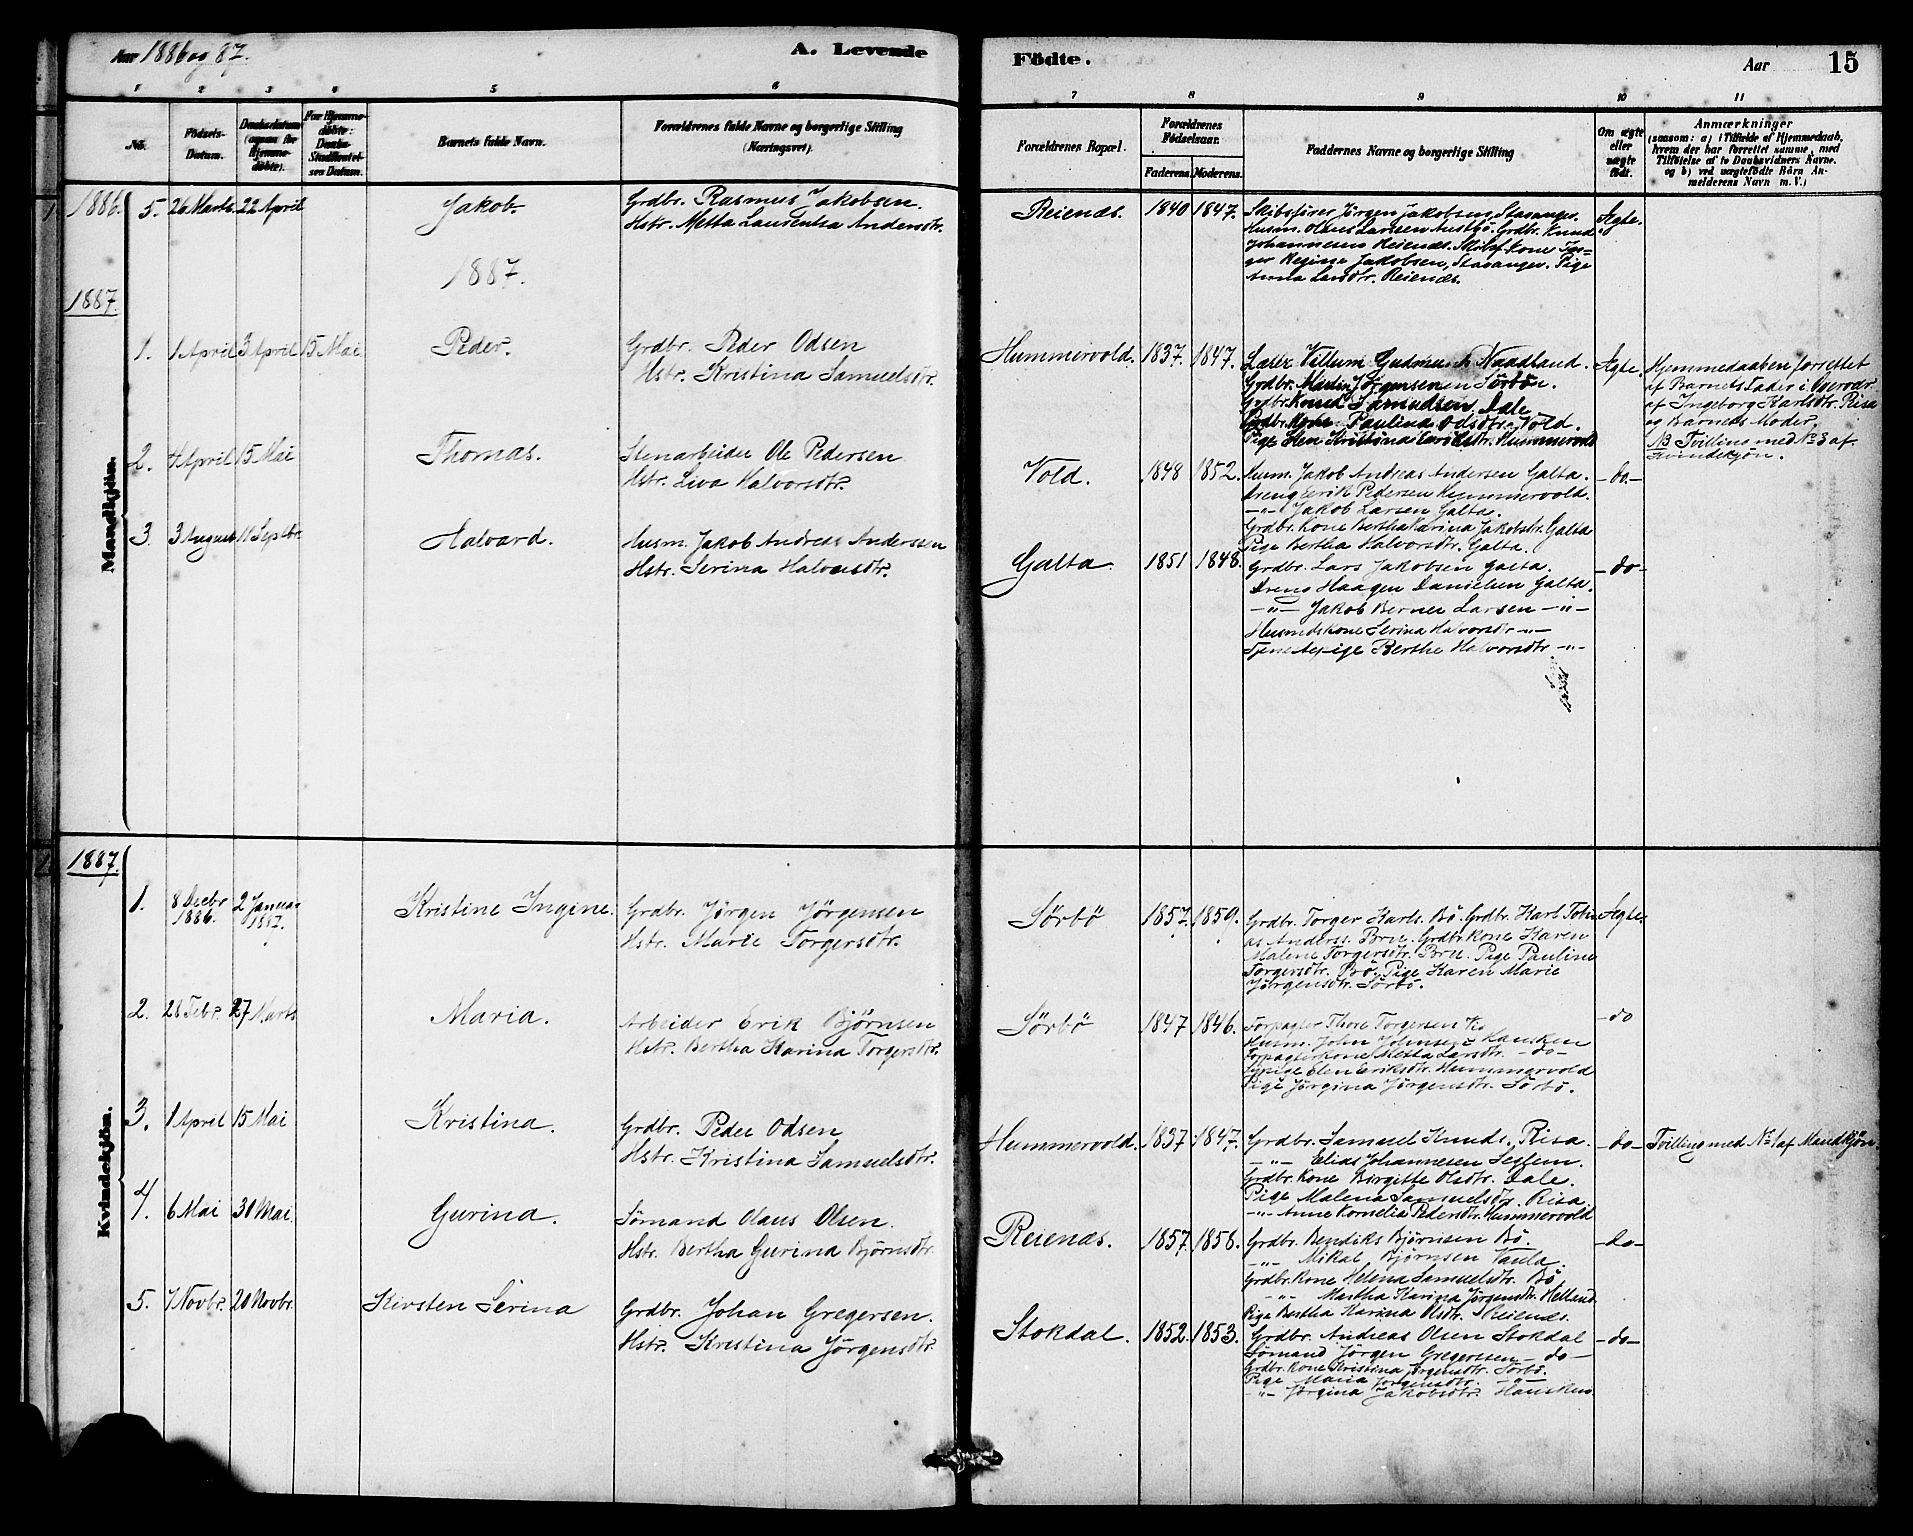 Aar 1886 og 87.
A. Levende
1 2 3 4 5 6
No.
Födsels-Datum.
Daabsdatum (ogsaa for Hjemme-döbte).
For Hjemme-döbte: Daabs-Stadfæstel-ses Datum.
Barnets fulde Navn.
Forældrenes fulde Navne og borgerlige Stilling (Næringsvei).
1886. 5. 26 Marts 22 April Jakob. Grdbr. Rasmus Jakobsen.
Hstr. Metta Laurentsa Andersdtr.
1887.
1887.
Mandkjön.
1. 1 April 3 April 15 Mai Peder. Grdbr. Peder Odsen
Hstr. Kristina Samuelsdtr.
2. 4 April 15 Mai Thomas. Stenarbeider Ole Pedersen
Hstr. Liva Halvorsdtr.
3. 3 August 11 Septbr. Halvard. Husm. Jakob Andreas Anderssen
Hstr. Serina Halvorsdtr.
1887.
Kvindekjön.
1. 8 Decbr 1886. 2 Januar 1887. Kristine Ingine. Grdbr. Jörgen Jörgensen
Hstr. Marie Torgersdtr.
2. 28 Febr. 27 Marts Maria. Arbeider Erik Björnsen
Hstr. Bertha Karina Torgersdtr.
3. 1 April 15 Mai Kristina. Grdbr. Peder Odsen
Hstr. Kristina Samuelsdtr.
4. 6 Mai 30 Mai. Gurina. Sömand Olaus Olsen.
Hstr. Bertha Gurina Björnsdtr.
5. 7 Novbr. 20 Novbr. Kirsten Serina Grdbr. Johan Gregersen.
Hstr. Kristina Jörgensdtr.
Födte.
Aar 15
7 8 9 10 11
Forældrenes Bopæl.
Forældrenes Födselsaar.
Faderens. Moderens.
Faddernes Navne og borgerlige Stilling
Om ægte eller uægte födt.
Anmærkninger
(saasom: a) i Tilfælde af Hjemmedaab,
hvem der har forrettet samme, med
Tilföielse af to Daabsvidners Navne.
og b) ved uægtefödte Börn An-
melderens Navn m. V.)
Reienæs. 1840 1847. Skibsförer Jörgen Jakobsen Stavanger. Ægte.
Husm. Olaus Larsen Austbö. Grdbr. Knud
Johannesen Reienæs. Skibsf.kone In-
ger Regine Jakobsen, Stavanger. Pige
Anna Larsdtr. Reienæs.
Hummervold. 1837. 1847. Lærer Villum Naadland. Ægte.
Grdbr. Martin Jörgensen Sörbö.
Grdbr. Knud Samuelsen Dale
Grdbr. Kone Paulina Odsdtr. Vold.
Pige Kristina Hummervold
Hjemmedaaben forrettet
af Barnets Fader i Overvær
af Ingeborg Karlsdtr. Risa
og Barnets Moder.
NB Tvilling med No 3 af
Kvindekjön.
Vold. 1848 1852. Husm. Jakob Andreas Andersen Galta. - do. -
Dreng Erik Pedersen Hummervold.
-"- Jakob Larsen Galta.
Grdbr. Kone Bertha Karina Jakobsdtr. Galta
Pige Bertha Halvorsdtr. Galta.
Galta. 1851 1848. Grdbr. Lars Jakobsen Galta. - do -
Dreng Haagen Danielsen Galta.
-"- Jakob Berner Larsen -"-
Husmdskone Serina Halvorsdtr -"-
Tjenestepige Berthe Halvorsdtr -"-
Sörbö 1857. 1859. Grdbr. Torger Karls. Bö. Grdbr. Karl Tobi- Ægte.
as Anderss. Bru. Grdbr.kone Karen
Malene Torgersdtr. Bru. Pige Pauline
Torgersdtr. Bö. Pige Karen Marie
Jörgensdtr. Sörbö.
Sörbö 1847 1846. Forpagter Thore Torgersen - do
Husm. John Hausken
Forpagterkone Metta Larsdtr. - do -
Elen Eriksdtr. Hummervold
Pige Jörgina Jörgensdtr. Sörbö.
Hummervold. 1837 1847. Grdbr. Samuel Knuds. Risa. - do - Tvilling med No 1 af Mandkjön.
-"- Elias Johannesen Sessem.
Grdbr. Kone Birgitte Olsdtr. Dale.
Pige Malena Samuelsdtr. Risa
-"- Anne Kornelia Pedersdtr. Hummervold
Reienæs. 1857 1858. Grdbr. Bendiks Björnsen Bö. - do -
-"- Mikal Björnsen Vaula.
Grdbr. Kone Helena Samuelsdtr. Bö
-"- Martha Karina Jörgensdtr. Helland.
Pige Bertha Karina Olsdtr. Reienæs.
Stokdal. 1852. 1853. Grdbr. Andreas Olsen Stokdal - do -
Sömand Jörgen Gregerssen - do -
Grdbr. Kone Kristina Jörgensdtr. Sörbö.
Pige Maria Jörgensdtr. -"-
-"- Jörgina Jakobsdtr. Hausken